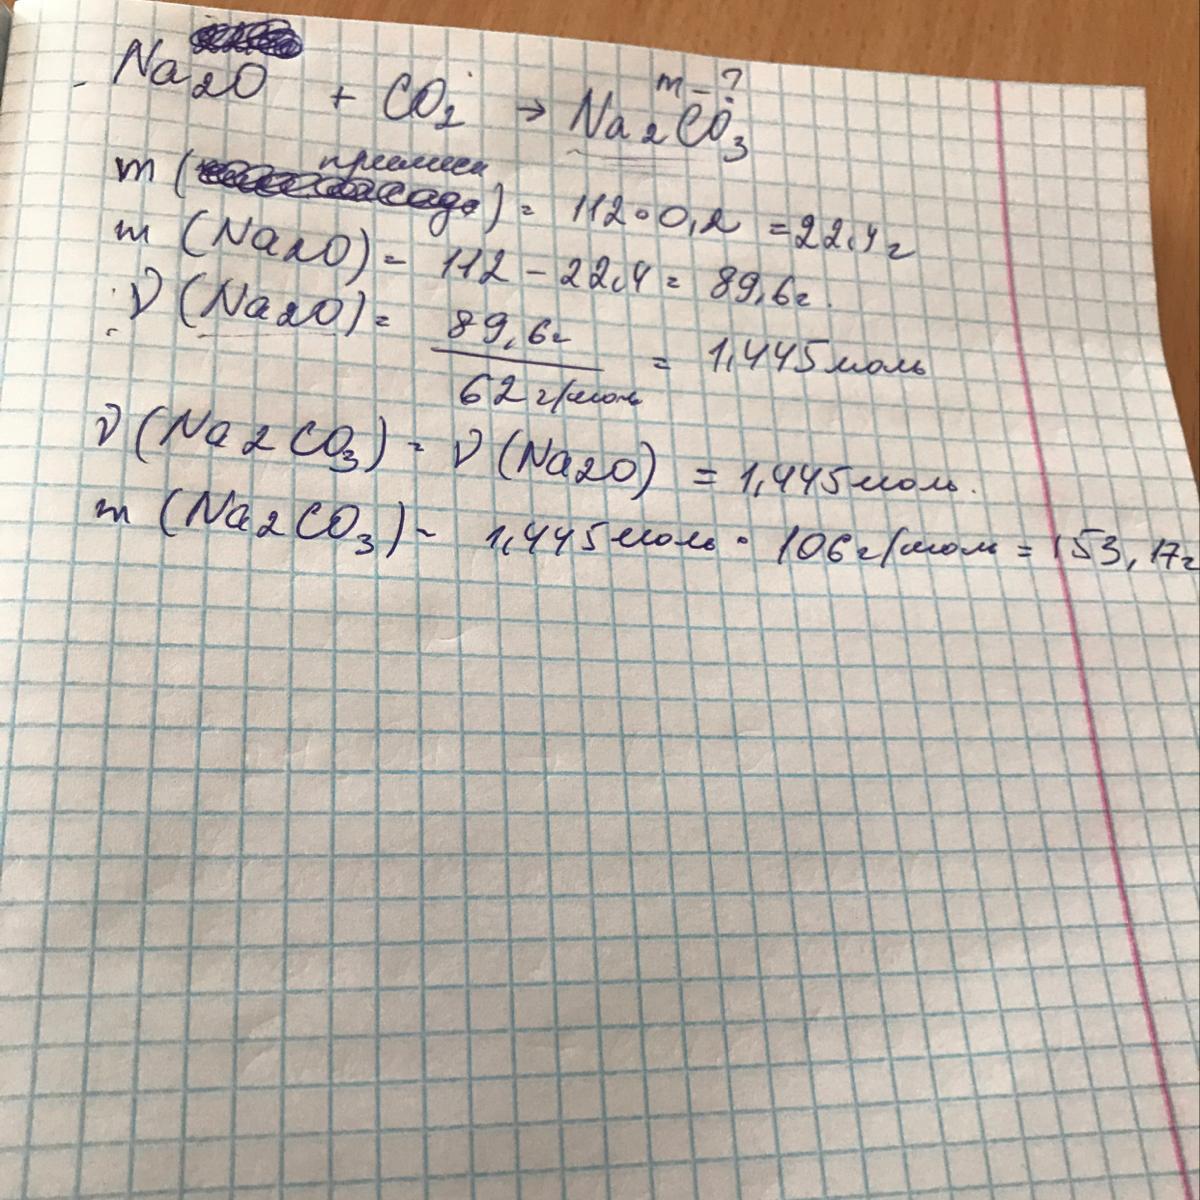 m – ?
Na2O + CO2 → Na2CO3
m (примеси) = 112 • 0,2 = 22,4 г
m (Na2O) = 112 – 22,4 = 89,6 г.
ν (Na2O) = 89,6 г / 62 г/моль = 1,445 моль
ν (Na2CO3) = ν (Na2O) = 1,445 моль.
m (Na2CO3) = 1,445 моль • 106 г/моль = 153,17 г